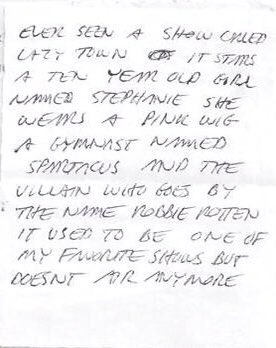 EVER SEEN A SHOW CALLED
LAZY TOWN IT STARS
A TEN YEAR OLD GIRL
NAMED STEPHANIE SHE
WEARS A PINK WIG
A GYMNAST NAMED
SPARTACUS AND THE
VILLAIN WHO GOES BY
THE NAME ROBBIE ROTTEN
IT USED TO BE ONE OF
MY FAVORITE SHOWS BUT
DOESNT AIR ANYMORE